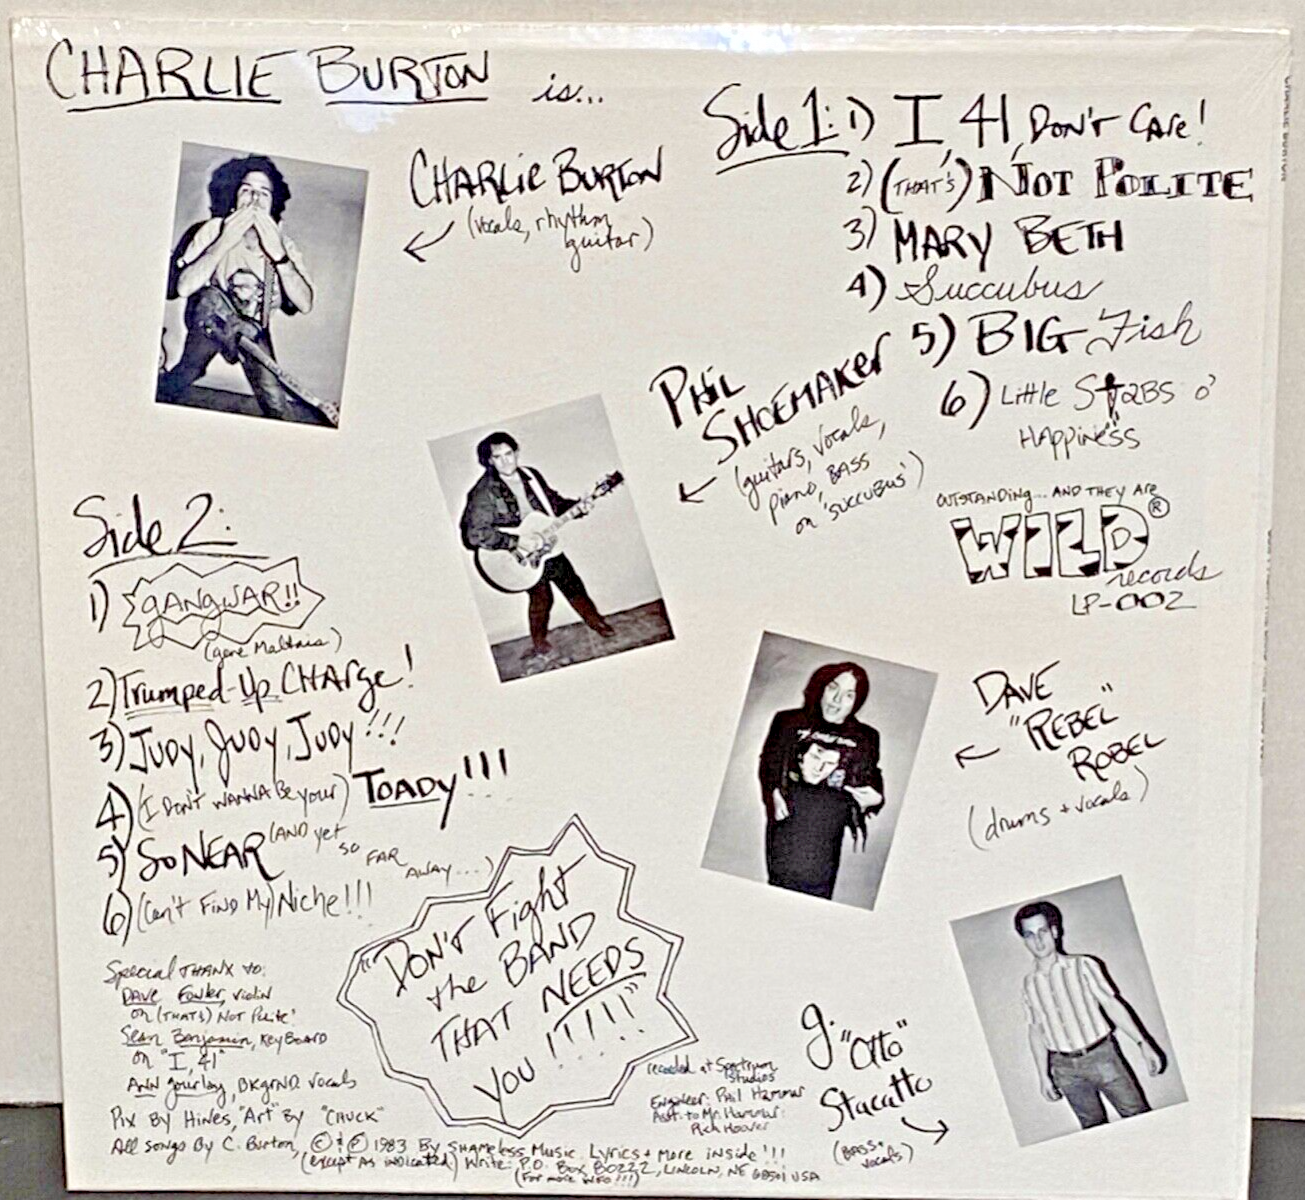 CHARLIE BURTON is...
CHARLIE BURTON
(vocals, rhythm
guitar)
Side 1: 1) I, 41, DON'T CARE!
2) (THAT'S) NOT POLITE
3) MARY BETH
4) Succubus
5) BIG Fish
6) Little STABS o'
HAPPINESS
PHIL
SHOEMAKER
(guitars, vocals,
piano, BASS
on 'SUCCUBUS')
OUTSTANDING... AND THEY ARE
WILD®
records
LP-002
Side 2:
1) GANGWAR!!
(gene Maltais)
2) Trumped-Up CHARGE!
3) JUDY, JUDY, JUDY!!!
4) (I DON'T WANNA Be your) TOADY!!!
5) SO NEAR (AND yet
so FAR
AWAY...)
6) (Can't FIND My) Niche!!!
DAVE
"REBEL"
ROBEL
(drums + vocals)
"DON'T Fight
the BAND
THAT NEEDS
YOU!!!!!"
Special THANX to:
DAVE Fowler, violin
on (THAT'S) NOT Polite'
Sean Benjamin, KEYBOARD
on "I, 41"
ANN Gourlay, BKGRND. vocals
Pix By Hines, "Art" By "CHUCK"
All songs By C. Burton, © & ℗ 1983 By SHAMELESS Music. Lyrics + More inside!!!
(except AS indicated) Write: P.O. Box 80222, LINCOLN, NE 68501 USA
(For more INFO!!!)
recorded at Spectrum
Studios
Engineer: Phil Hammar
Asst. to Mr. Hammar:
Rich Hoover
g. "Otto"
Stacatto
(BASS +
vocals)
CHARLIE BURTON